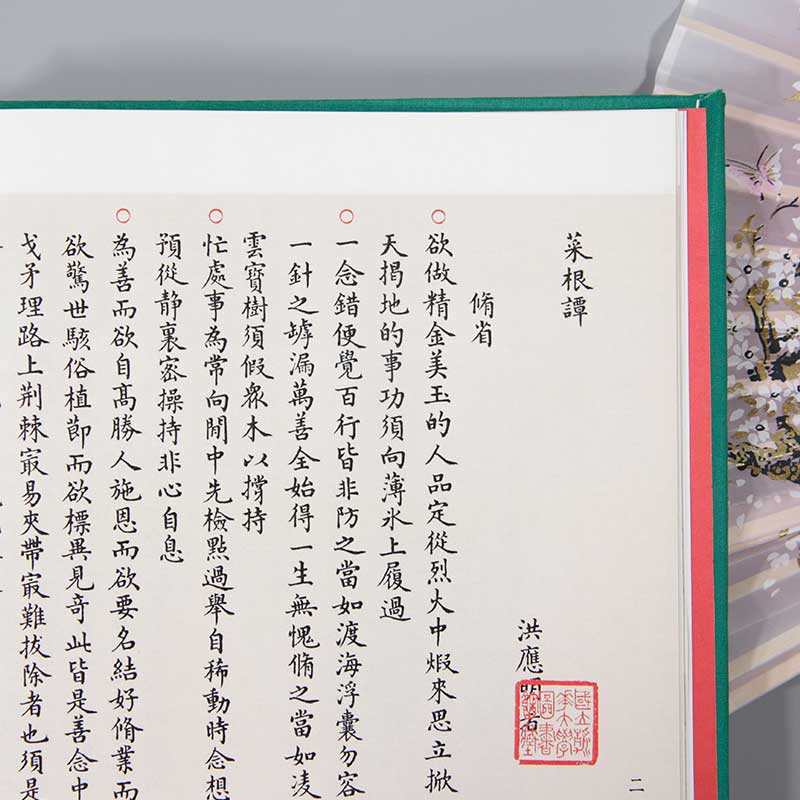 菜根譚
洪應明著
脩省
○欲做精金美玉的人品定從烈火中煆來思立掀
天揭地的事功須向薄氷上履過
○一念錯便覺百行皆非防之當如渡海浮囊勿容
一針之罅漏萬善全始得一生無愧脩之當如凌
雲寶樹須假衆木以撐持
○忙處事為常向閒中先檢點過舉自稀動時念想
預從静裏密操持非心自息
○為善而欲自髙勝人施恩而欲要名結好脩業而
欲驚世駭俗植節而欲標異見奇此皆是善念中
戈矛理路上荆棘㝡易夾帶㝡難拔除者也須是
二